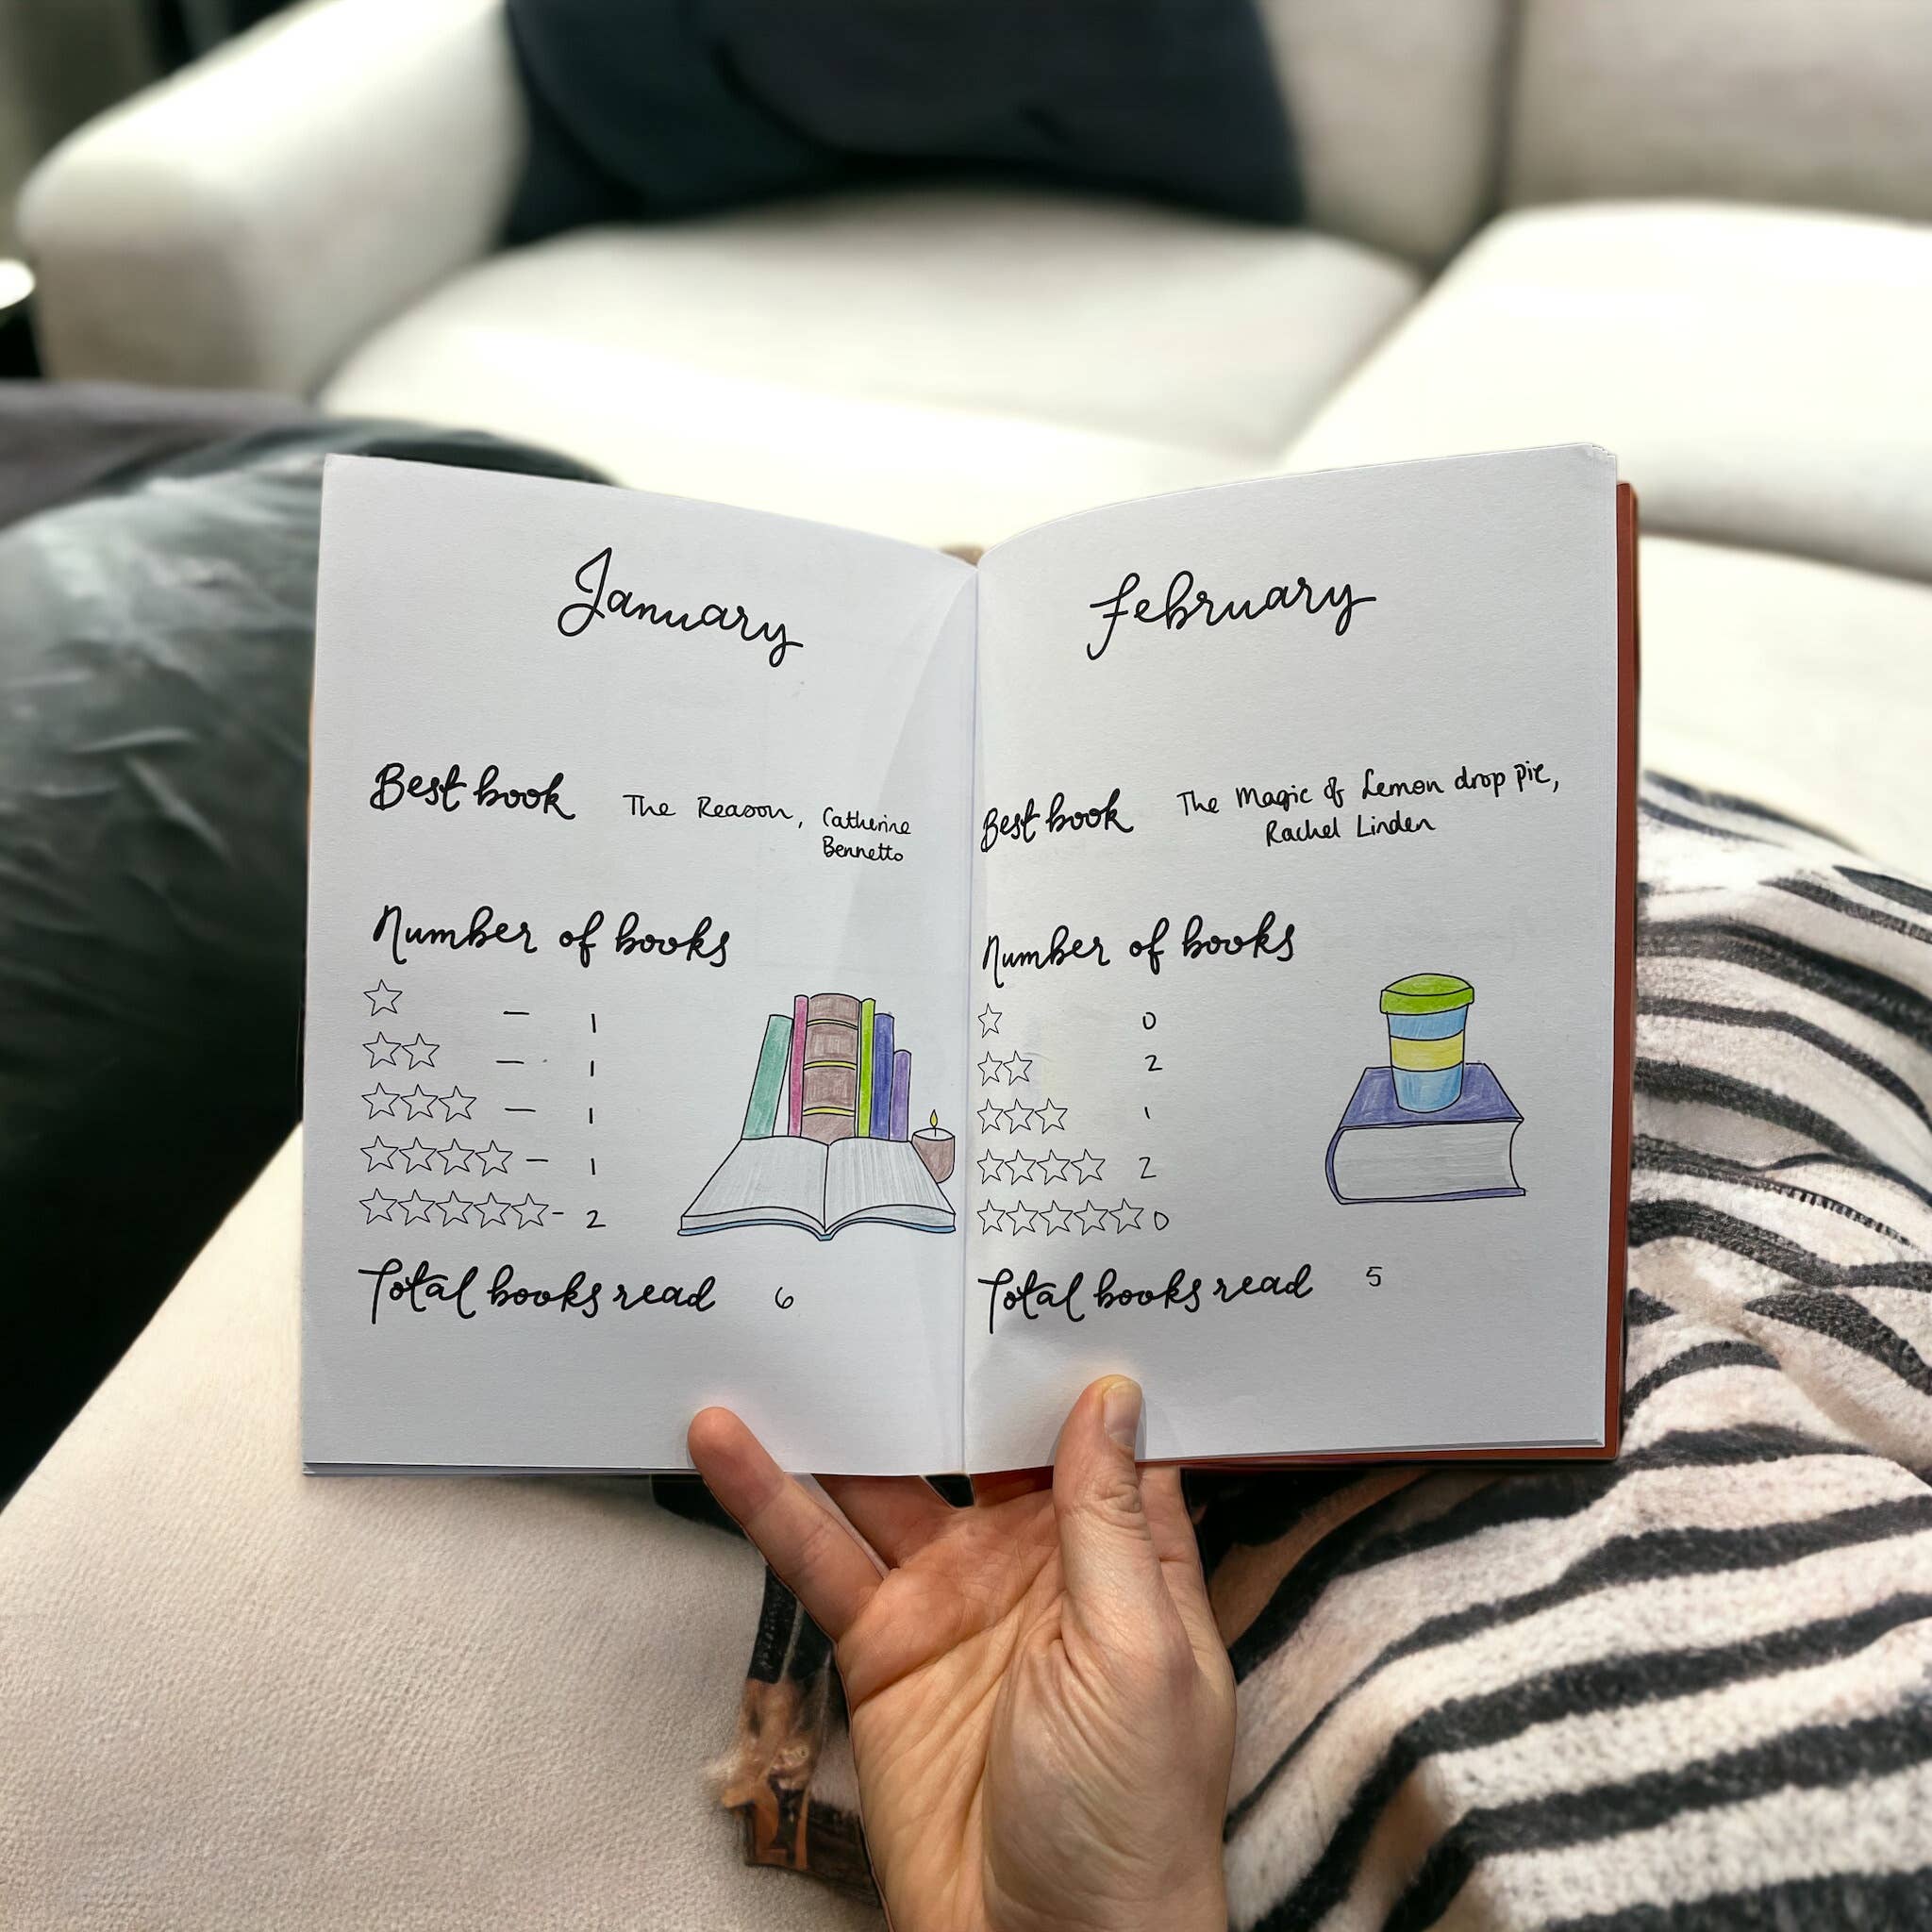 January
Best book The Reason, Catherine
Bennetto
Number of books
☆ - 1
☆☆ - 1
☆☆☆ - 1
☆☆☆☆ - 1
☆☆☆☆☆ - 2
Total books read 6
February
Best book The Magic of Lemon drop pie,
Rachel Linden
Number of books
☆ 0
☆☆ 2
☆☆☆ 1
☆☆☆☆ 2
☆☆☆☆☆ 0
Total books read 5